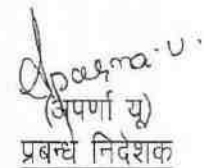 Aparna.U.
(अपर्णा यू)
प्रबन्ध निदेशक